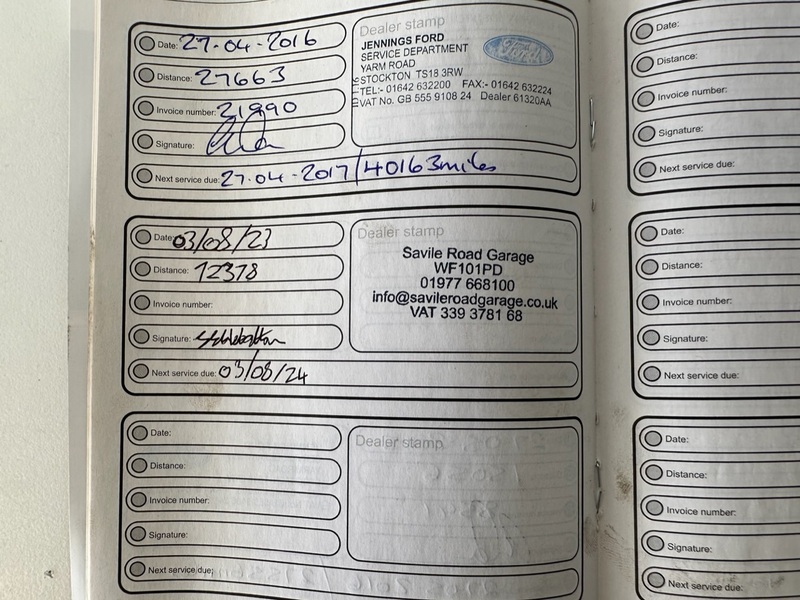 Date: 27-04-2016
Distance: 27663
Invoice number: 21990
Signature:
Next service due: 27-04-2017/40163miles
Dealer stamp
JENNINGS FORD
SERVICE DEPARTMENT
YARM ROAD
STOCKTON TS18 3RW
TEL:- 01642 632200 FAX:- 01642 632224
VAT No. GB 555 9108 24 Dealer 61320AA
Ford
Date: 03/08/23
Distance: 12378
Invoice number:
Signature:
Next service due: 03/08/24
Dealer stamp
Savile Road Garage
WF101PD
01977 668100
info@savileroadgarage.co.uk
VAT 339 3781 68
Date:
Distance:
Invoice number:
Signature:
Next service due:
Dealer stamp
Date:
Distance:
Invoice number:
Signature:
Next service due:
Date:
Distance:
Invoice number:
Signature:
Next service due:
Date:
Distance:
Invoice number:
Signature:
Next service due: